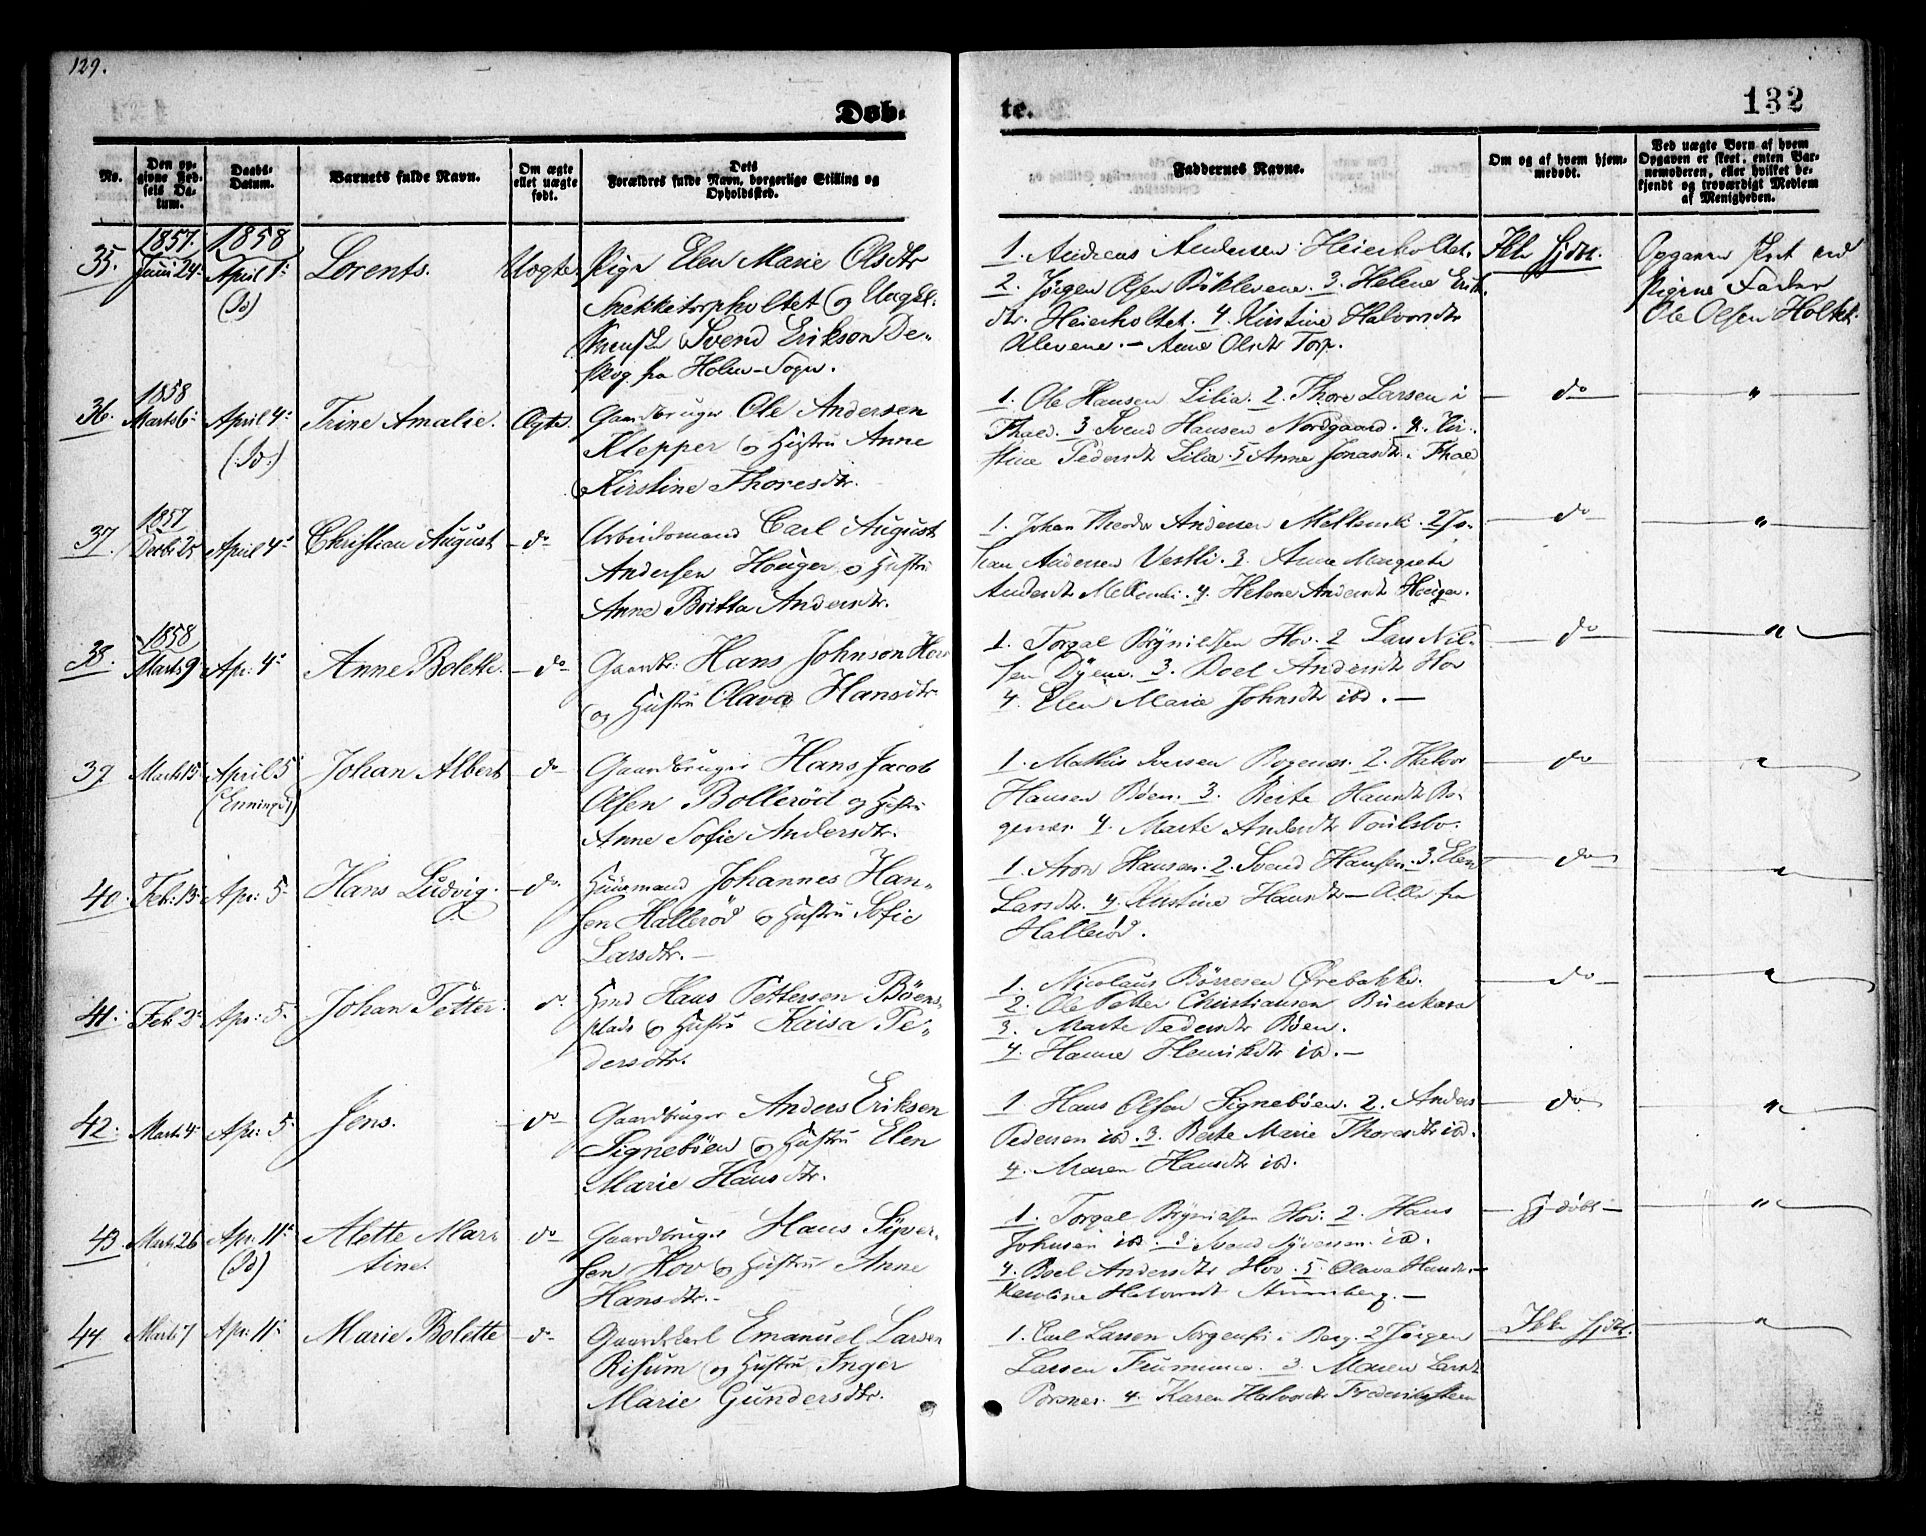 129.
132
Døb-
te.
No.
Den op-
givne Fød-
sels Da-
tum.
Daabs-
Datum.
Barnets fulde Navn.
Om ægte
ellet uægte
født.
Dets
Forældres fulde Navn, borgerlige Stilling og
Opholdssted.
Faddernes Navne.
Om og af hvem hjem-
medøbt.
Ved uægte Børn af hvem
Opgaven er skeet, enten Bar-
nemoderen, eller hvilket be-
kjendt og troværdigt Medlem
af Menigheden.
1857. 1858
35. Juni 24 April 1: Lorents. Uægte. Pige Elen Marie Olsdtr
(Id)
og Ungk.
Svend Erikson
skog fra Holm-Sogn.
1. Andreas Andersen Heierholtet.
2. Jørgen Olsen 3. Helene Erik
dtr. Heierholtet. 4. Kirstine Halvorsdtr
Klevene. – Anne Olsdtr Torp.
Ikke hjdbt.
Opgaven skeet ved
Pigens Fader
Ole Olsen Holtet.
1858
36. Marts 6: April 4: Trine Amalie. Ægte. Gaardbruger Ole Andersen
(Id.)
Klepper og Hustru Anne
Kirstine Thoresdtr.
1. Ole Hansen Lilia. 2. Thore Larsen i
Thale. 3 Svend Hansen Nordgaard. 4. Kir-
stine Pedersdtr Lilia. 5 Anne Jonasdtr i Thale
do "
1857
37. Decbr 25 April 4: Christian August do Arbeidsmand Carl August
Andersen Houger og Hustru
Anne Britta Andersdtr.
1. Johan Theodor Andersen 2 Jo-
han Andersen Vestli. 3. Anne Margrete
Andersdtr 4. Helene Andersdtr Hougen.
do "
1858
38. Marts 9 Apr: 4: Anne Bolette. do Gaardbr: Hans Johnson Hov
og Hustru Olava Hansdtr
1. Torgal Brynildsen Hov. 2 Lars Nil-
sen 3. Boel Andersdtr Hov
4. Elen Marie Johnsdtr ibd. –
do "
39 Marts 15 April 5 Johan Albert do Gaardbruger Hans Jacob
(Enningd.)
Olsen Bollerød og Hustru
Anne Sofie Andersdtr.
1. Mathis Iversen Bogenes. 2. Halvor
Hansen Bøen. 3. Berte Hansdtr Bo-
genes. 4. Marte Andersdtr
do "
40. Feb: 15 Apr: 5 Hans Ludvig. do Huusmand Johannes Han-
sen Hallerød og Hustru Sofie
Larsdtr. –
1. Aron Hansen. 2. Svend Hansen. 3. Elen
Larsdtr. 4. Kirstine Hansdtr – Alle fra
Hallerød.
do "
41. Feb: Apr: 5 Johan Petter do Hmd Hans Pettersen Bøens-
plads og Hustru Kaisa Pe-
dersdtr.
1. Nicolaus Børresen Ørebakke.
2. Ole Petter Christiansen
3. Marte Pedersdtr Bøen.
4. Hanne Henriksdtr ibd. –
do "
42. Marts 4 Apr: 5 Jens. do Gaardbruger Anders Eriksen
Signebøen og Hustru Elen
Marie Hansdtr.
1. Hans Olsen Signebøen. 2. Anders
Pedersen ibd. 3. Berte Marie Thoresdtr ibd.
4. Maren Hansdtr ibd.
do "
43. Marts 26 Apr: 11: Alette Mar-
(Id) tine. do Gaardbruger Hans Syver-
sen Hov og Hustru Anne
Hansdtr. –
1. Torgal Brynildsen Hov. 2. Hans
Johnsen ibd. 3 Svend Syversen. ibd.
4. Boel Andersdtr Hov. 5. Olava Hansdtr –
Karoline Halvorsdtr
Hj.døbt "
44. Marts 7 Apr: 11: Marie Bolette do Gaardskarl Emanuel Larsen
Risum og Hustru Inger
Marie Gundersdtr.
1. Carl Larsen Sorgenfri i Berg. 2 Jørgen
Larsen 3. Maren Larsdtr
4. Karen Halvorsdtr Frederiksteen
Ikke hjdbt. "